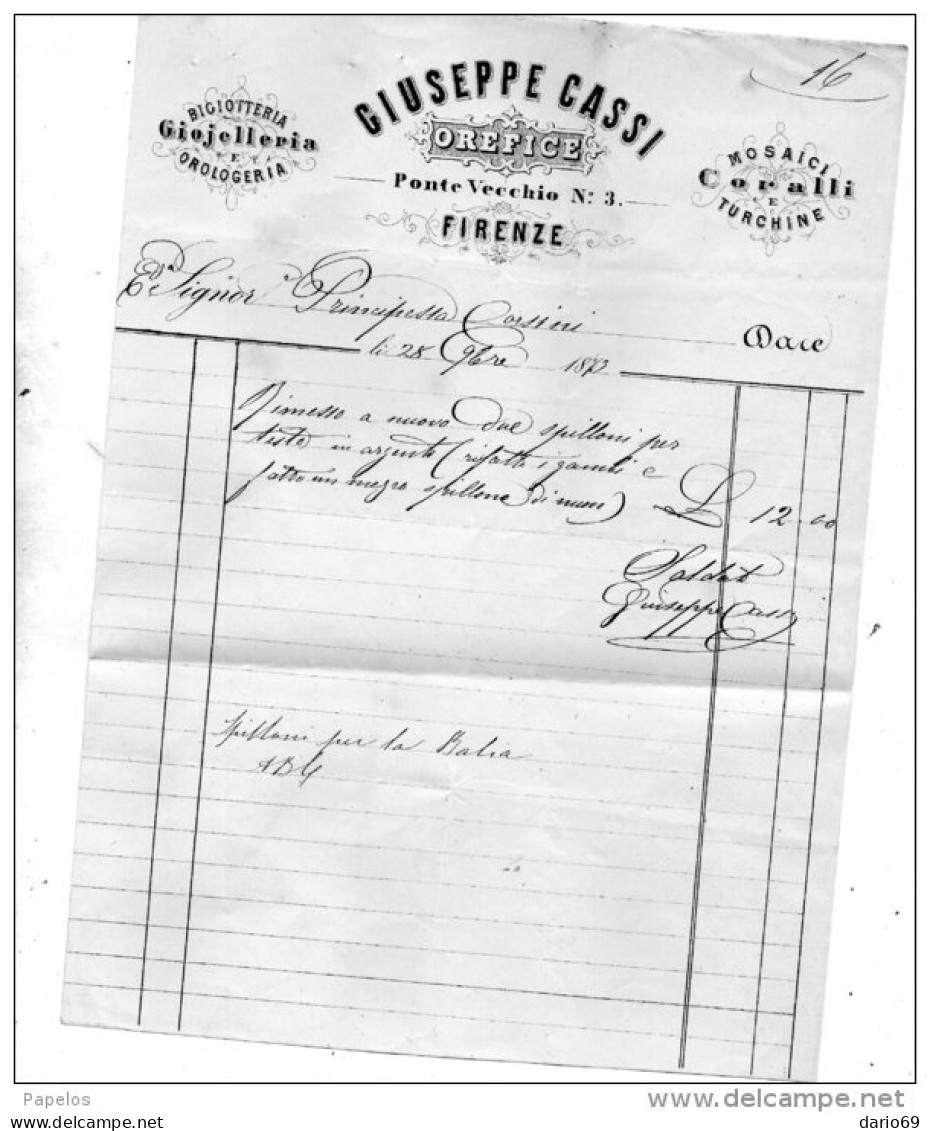 16
GIUSEPPE CASSI
OREFICE
Ponte Vecchio Nº 3.
FIRENZE
BIGIOTTERIA
Giojelleria
E
OROLOGERIA
MOSAICI
Coralli
E
TURCHINE
Signor Principessa Corsini Dare
li 28 9bre 187
Rimesso a nuovo due spilloni per
testa in argento (rifatti i gambi e
fatto un mezzo spillone di nuovo) L 12.00
Saldato
Giuseppe Cassi
Spilloni per la Balia
Papelos
www.delcampe.net
dario69